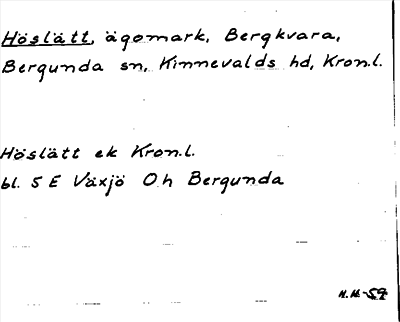 Höslätt, ägomark, Bergkvara,
Bergunda sn, Kinnevalds hd, Kron.l.
Höslätt ek Kron.l.
bl. 5 E Växjö Oh Bergunda
H.H.-59